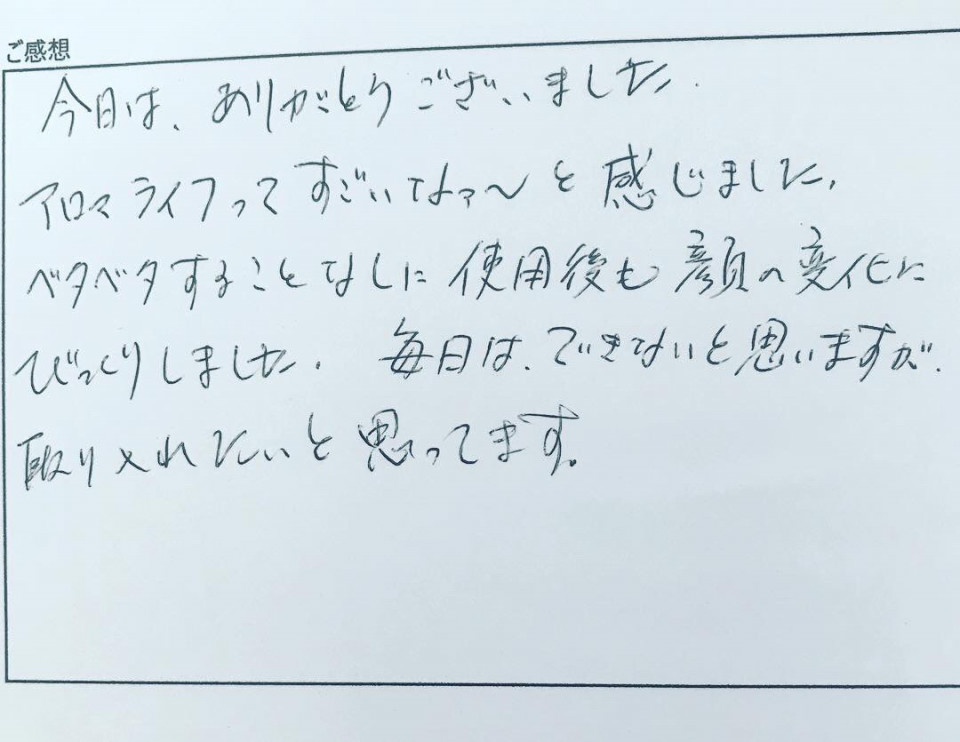 ご感想
今日は、ありがとうございました.
アロマライフってすごいなァ〜と感じました.
ベタベタすることなしに使用後も顔の変化に
びっくりしました. 毎日は、できないと思いますが.
取り入れたいと思ってます。